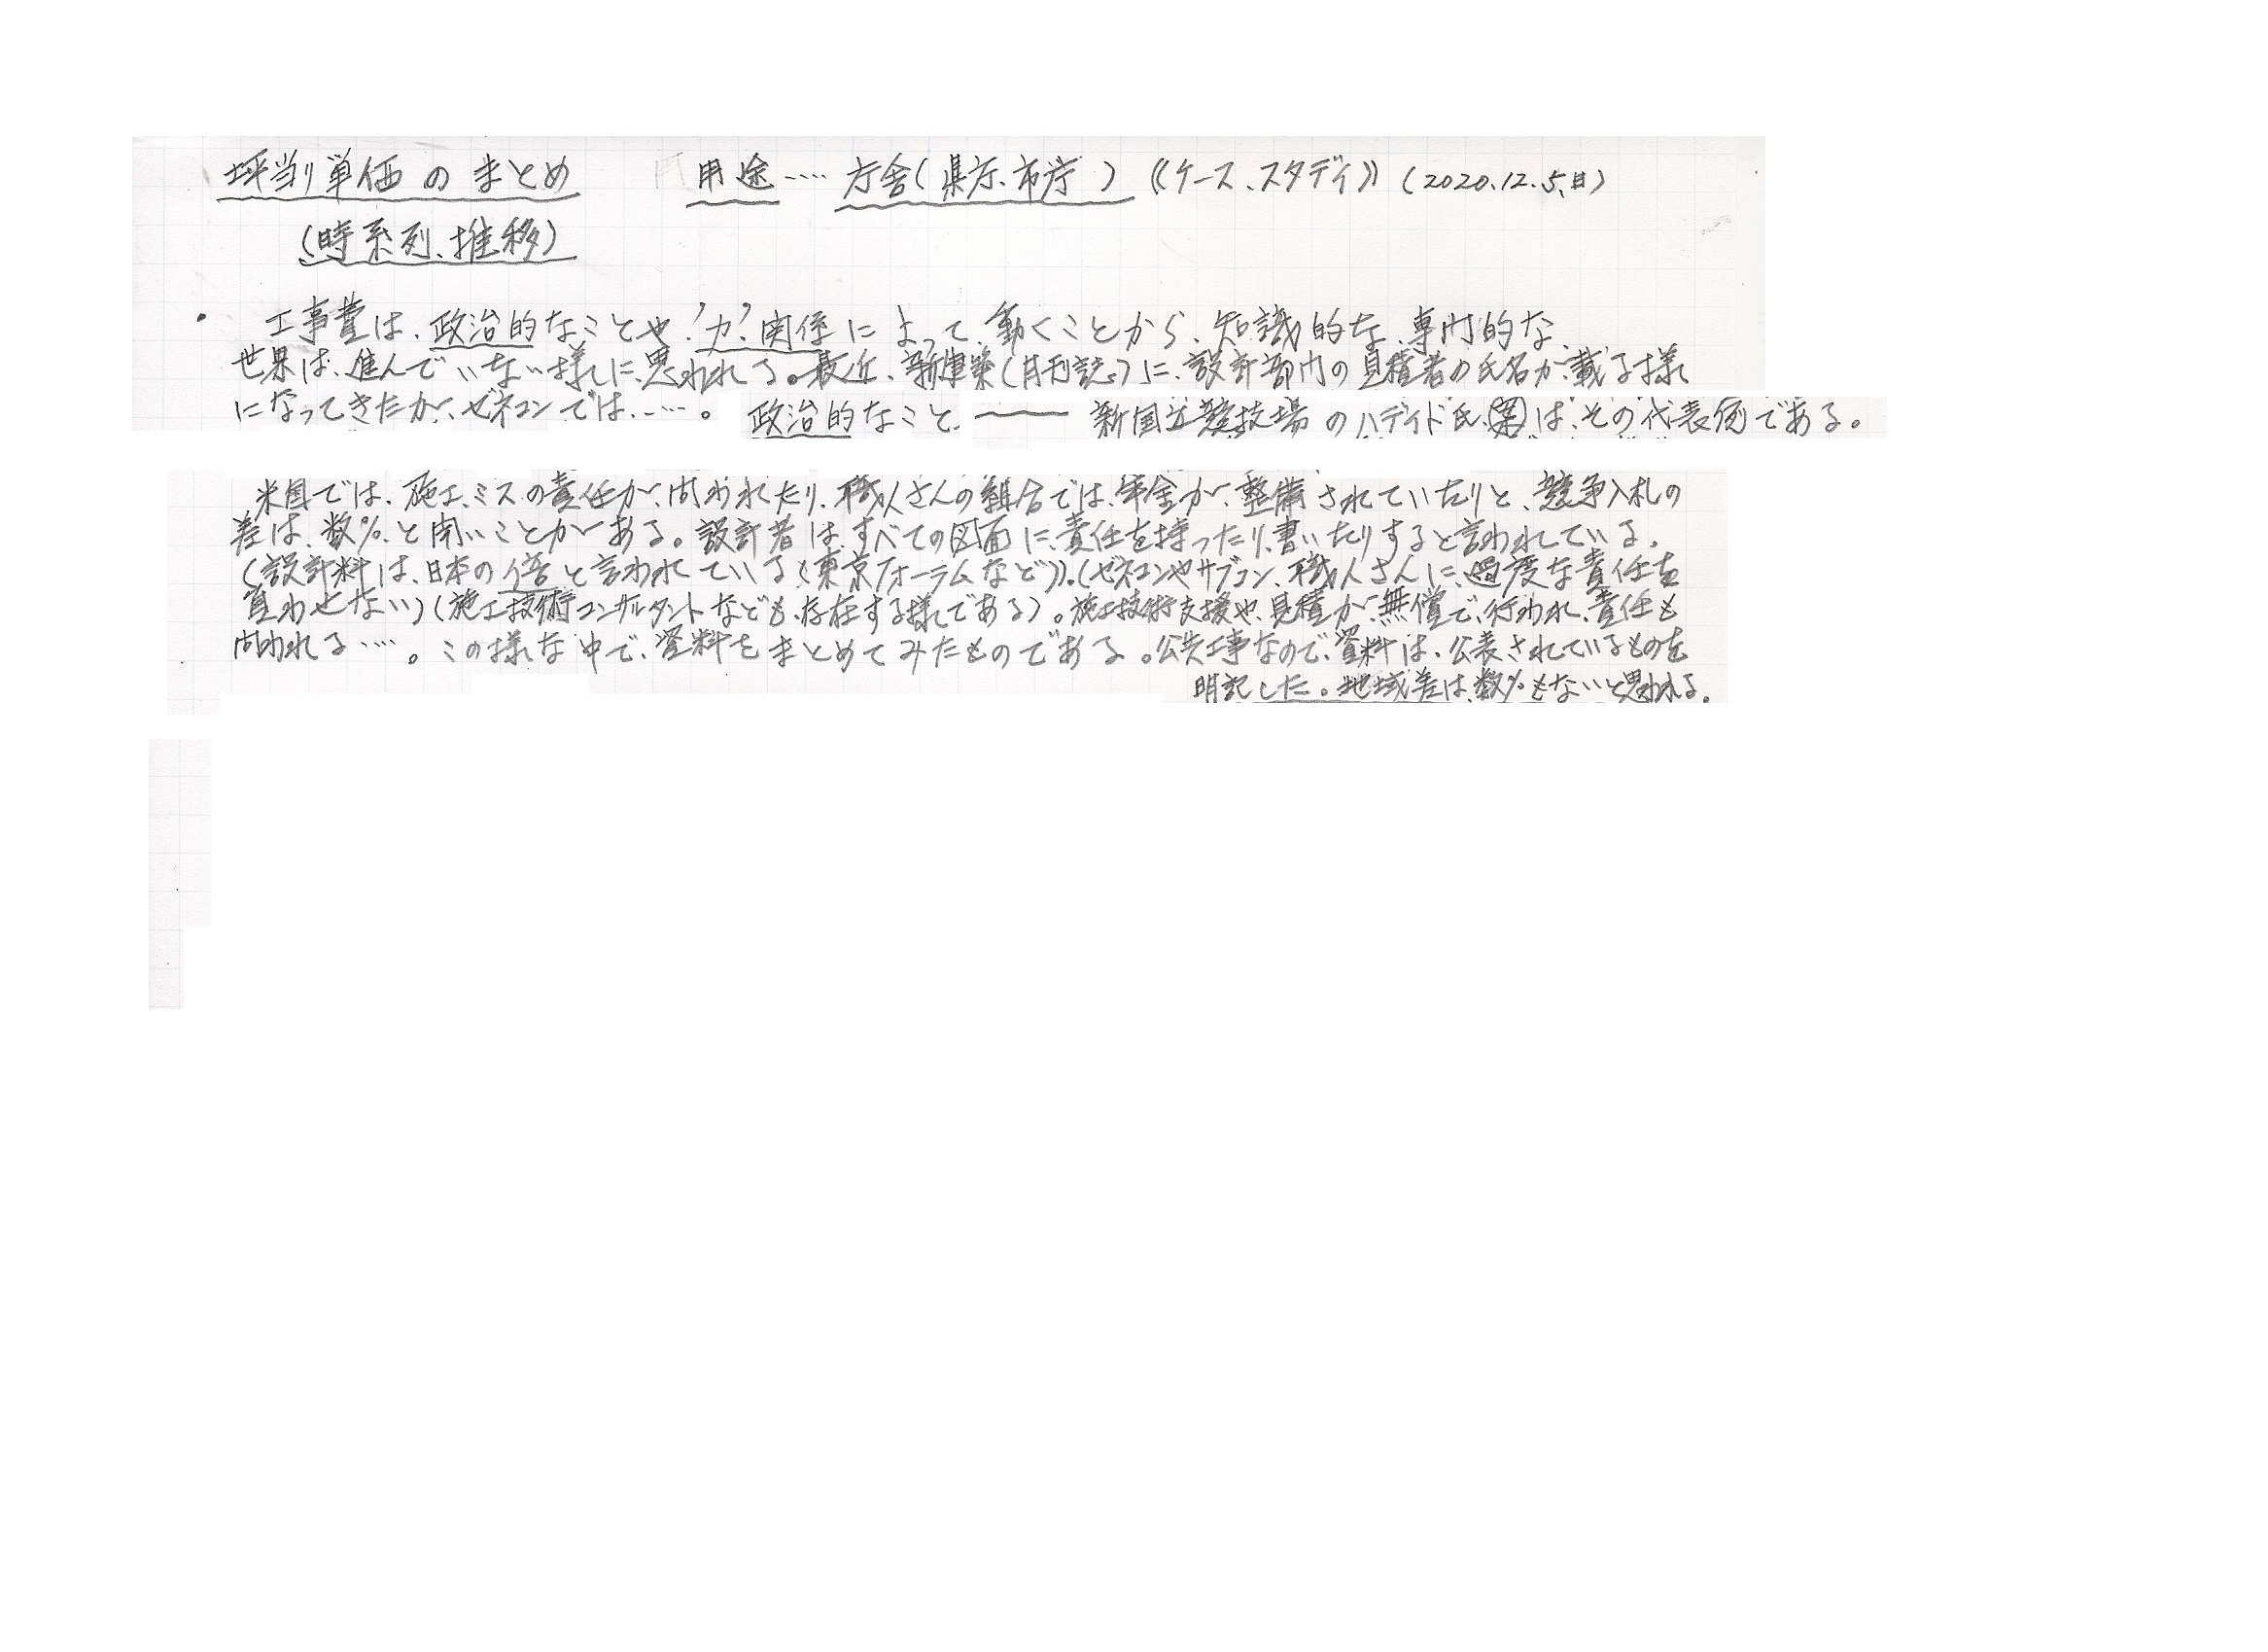 坪当り単価のまとめ 用途‥‥庁舎(県庁、市庁)《ケース、スタディ》(2020.12.5、日)
(時系列、推移)
・工事費は、政治的なことや'力'関係によって、動くことから、知識的な、専門的な、
世界は、進んでいない様に、思われる。最近、新建築(月刊誌)に、設計部門の見積者の氏名が、載る様
になってきたが、ゼネコンでは、‥‥。 政治的なこと、―― 新国立競技場のハディド氏、案は、その代表例である。
米国では、施工、ミスの責任が、問われたり、職人さんの組合では、年金が、整備されていたりと、競争入札の
差は、数%、と聞いことがある。設計者は、すべての図面に、責任を持ったり、書いたりすると言われている。
(設計料は、日本の倍と言われている(東京フォーラムなど))。(ゼネコンやサブコン、職人さんに、過度な責任を
負わせない)(施工技術コンサルタントなども、存在する様である)。施工技術支援や、見積が、無償で、行われ、責任も
問われる‥‥。この様な中で、資料をまとめてみたものである。公共工事なので、資料は、公表されているものを
明記した。地域差は、数%もないと思われる。